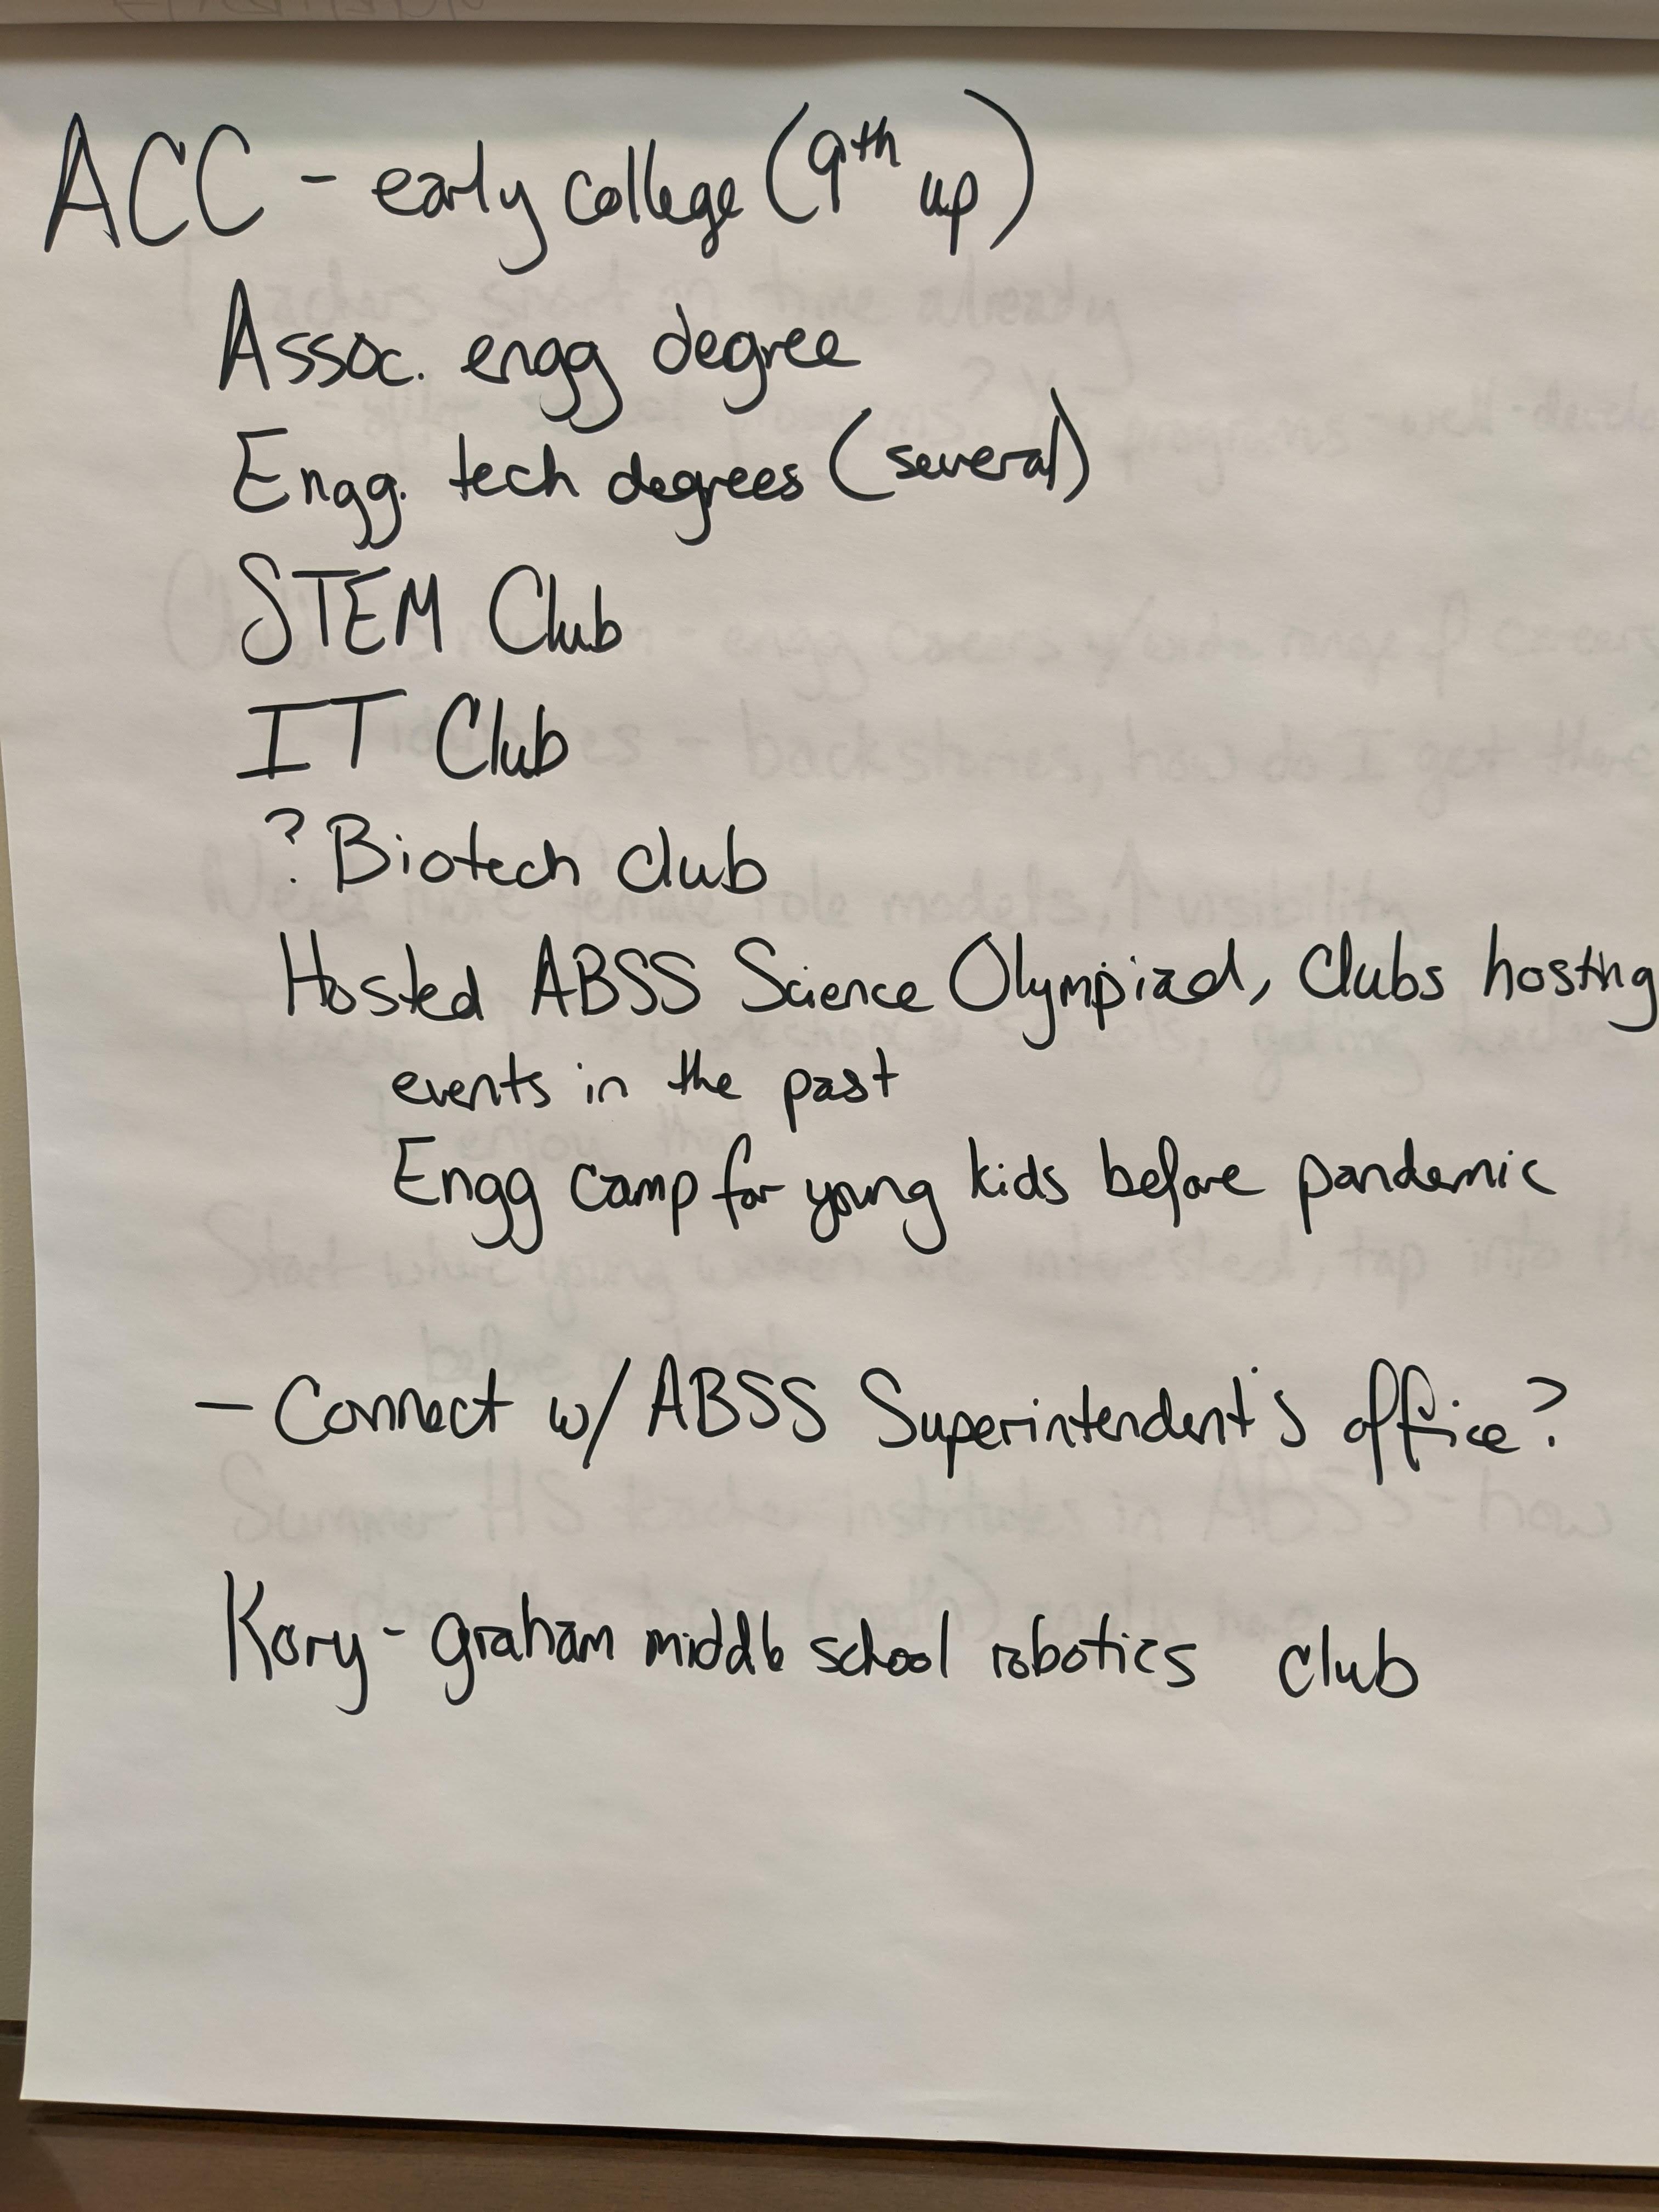 ACC - early college (9th up)
Assoc. engg degree
Engg. tech degrees (several)
STEM Club
IT Club
? Biotech club
Hosted ABSS Science Olympiad, Clubs hosting
events in the past
Engg camp for young kids before pandemic
- Connect w/ ABSS Superintendent's office?
Kory - graham middle school robotics club